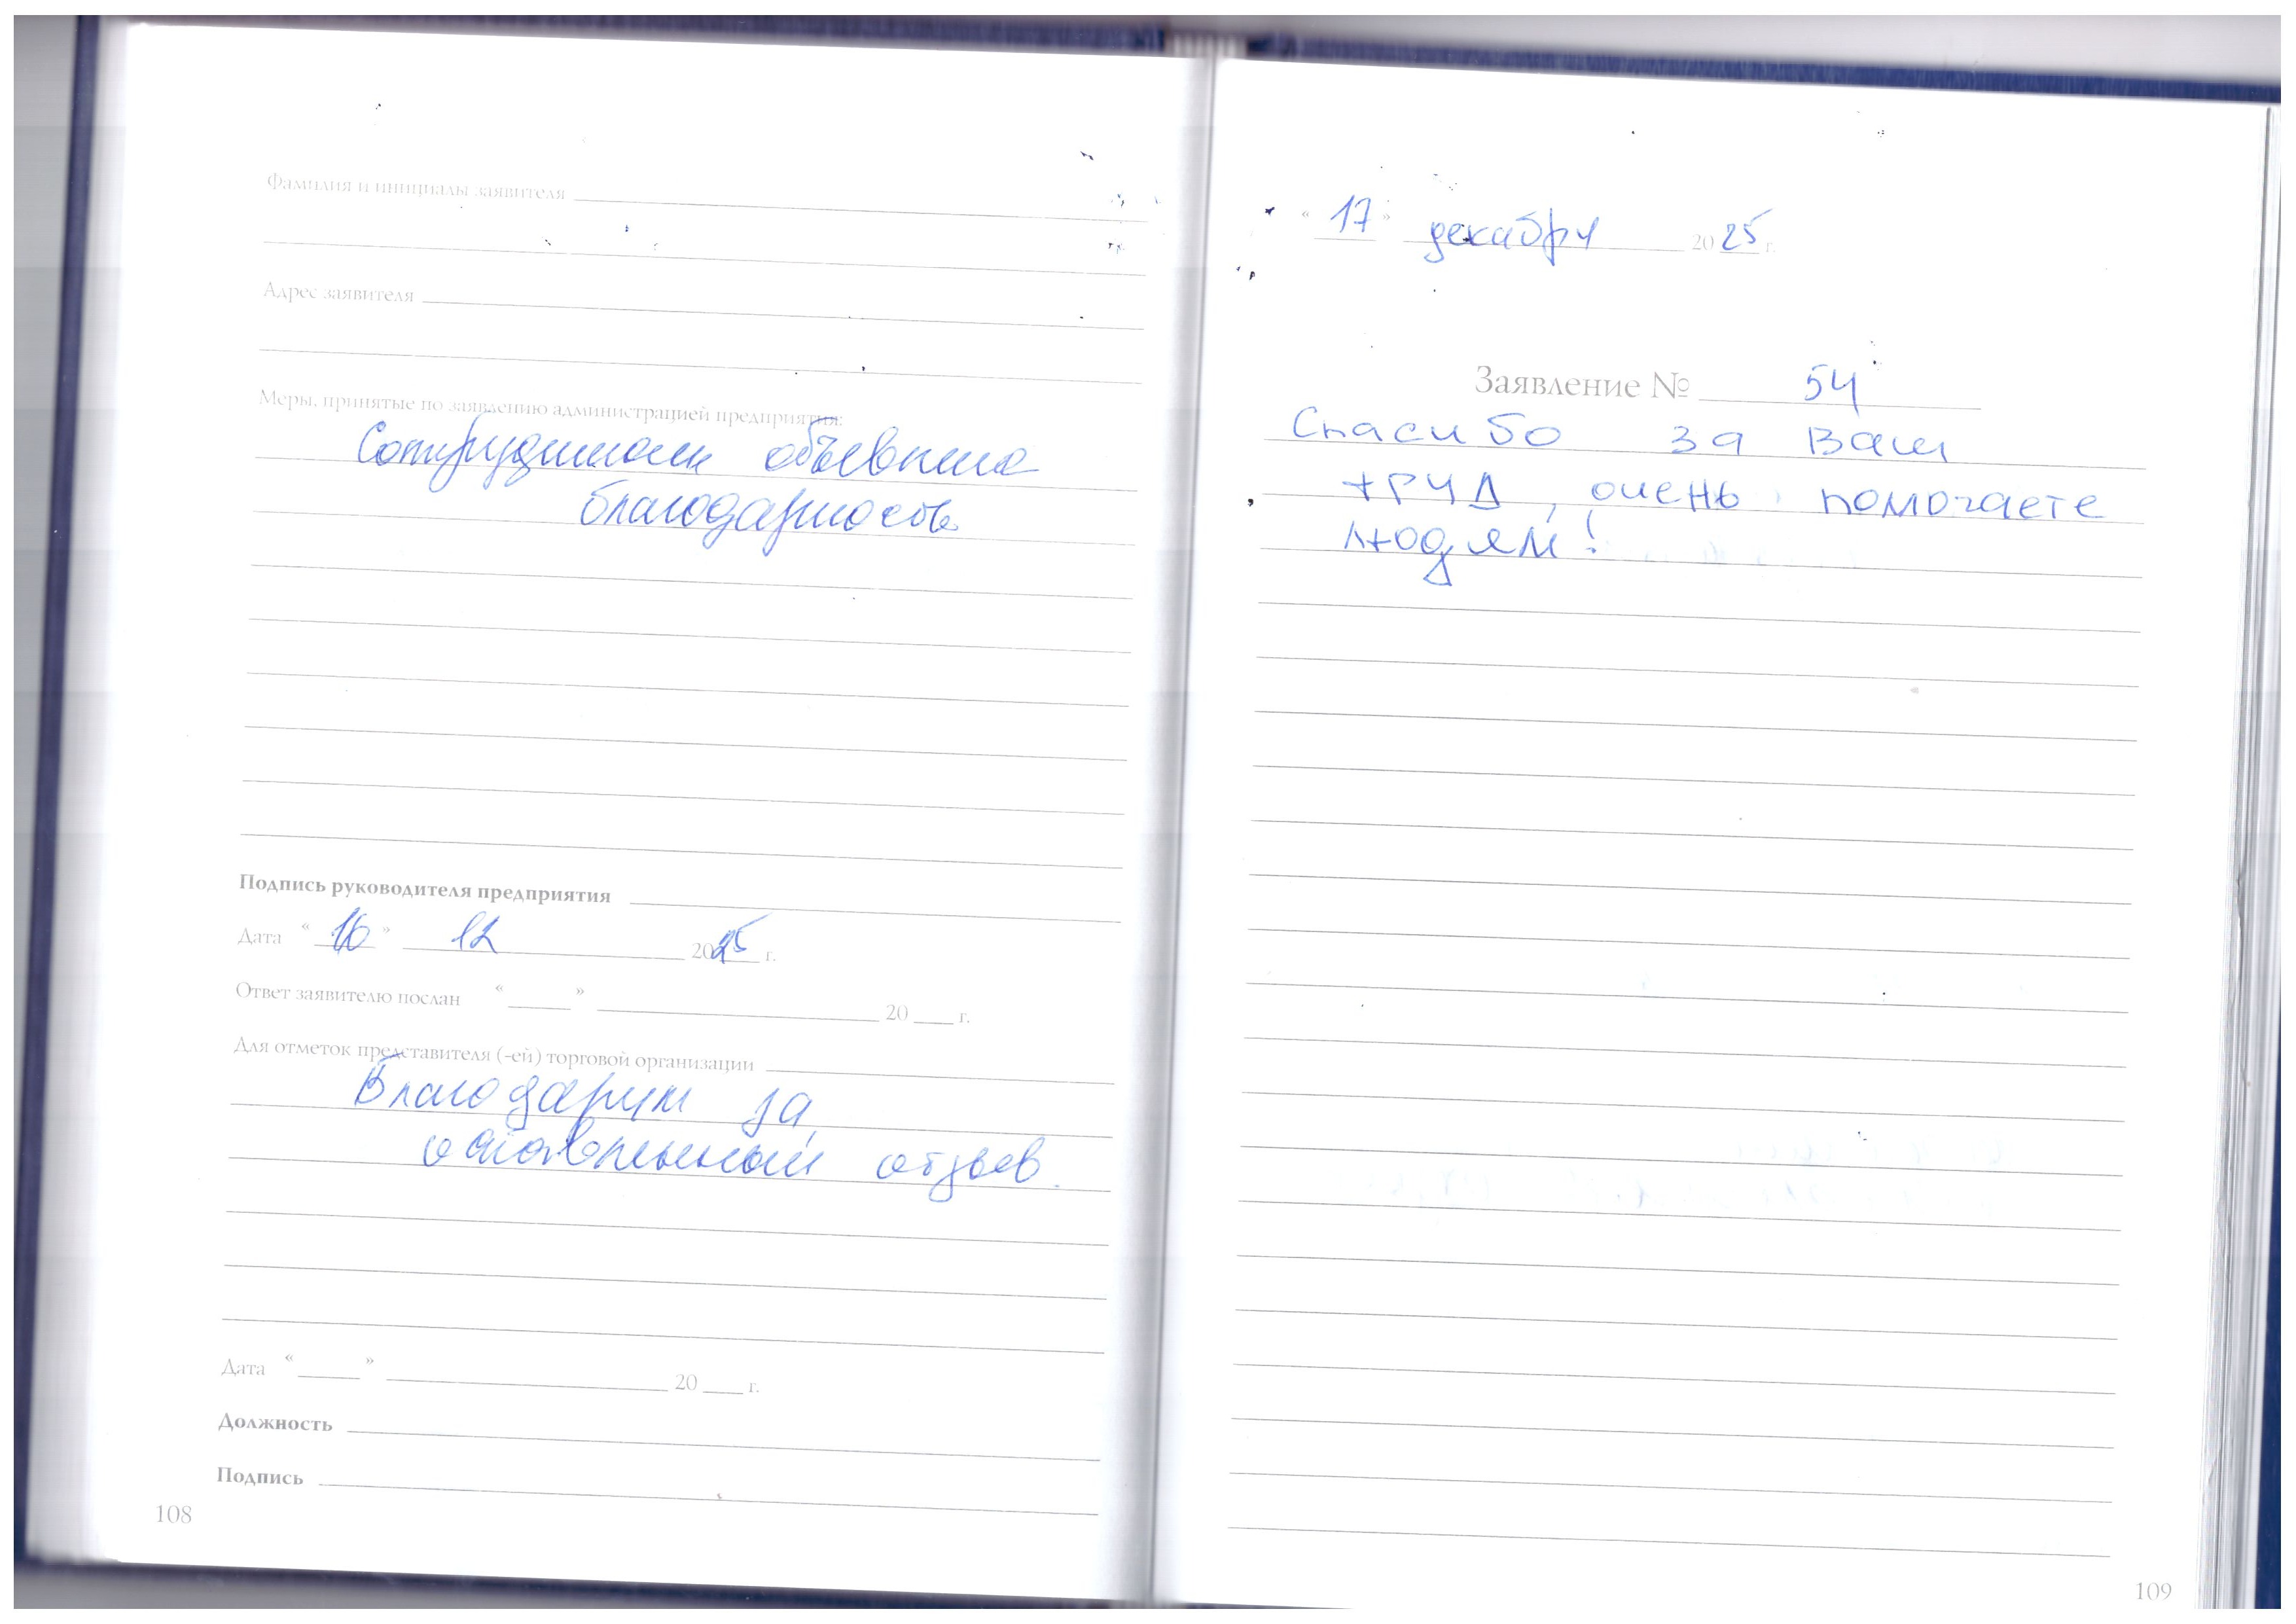 Фамилия и инициалы заявителя
Адрес заявителя
Меры, принятые по заявлению администрацией предприятия:
Сотрудникам объявлена
благодарность
Подпись руководителя предприятия
Дата « 16 » 12 2025 г.
Ответ заявителю послан « » 20 г.
Для отметок представителя (-ей) торговой организации
Благодарим за
оставленный отзыв.
Дата « » 20 г.
Должность
Подпись
108
« 17 » декабря 2025 г.
Заявление № 54
Спасибо за Ваш
труд, очень помогаете
людям!
109